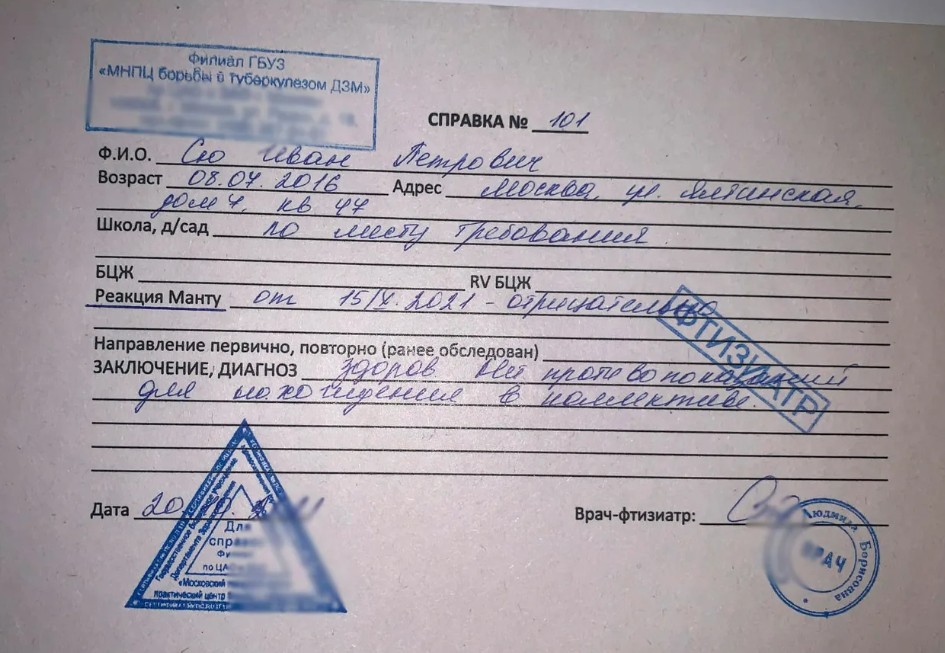 Филиал ГБУЗ
«МНПЦ борьбы с туберкулезом ДЗМ»
СПРАВКА № 101
Ф.И.О. Сю Иван Петрович
Возраст 08.07.2016 Адрес Москва, ул. Ялтинская,
дом 4, кв 47
Школа, д/сад по месту требования
БЦЖ RV БЦЖ
Реакция Манту от 15/X.2021 - отрицательно
ФТИЗИАТР
Направление первично, повторно (ранее обследован)
ЗАКЛЮЧЕНИЕ, ДИАГНОЗ Здоров Нет противопоказаний
для нахождения в коллективе.
Дата 20
Врач-фтизиатр:
Людмила Борисовна
ВРАЧ
Государственное бюджетное учреждение
Департамента
Для
по ЦА
«Московский
практический центр